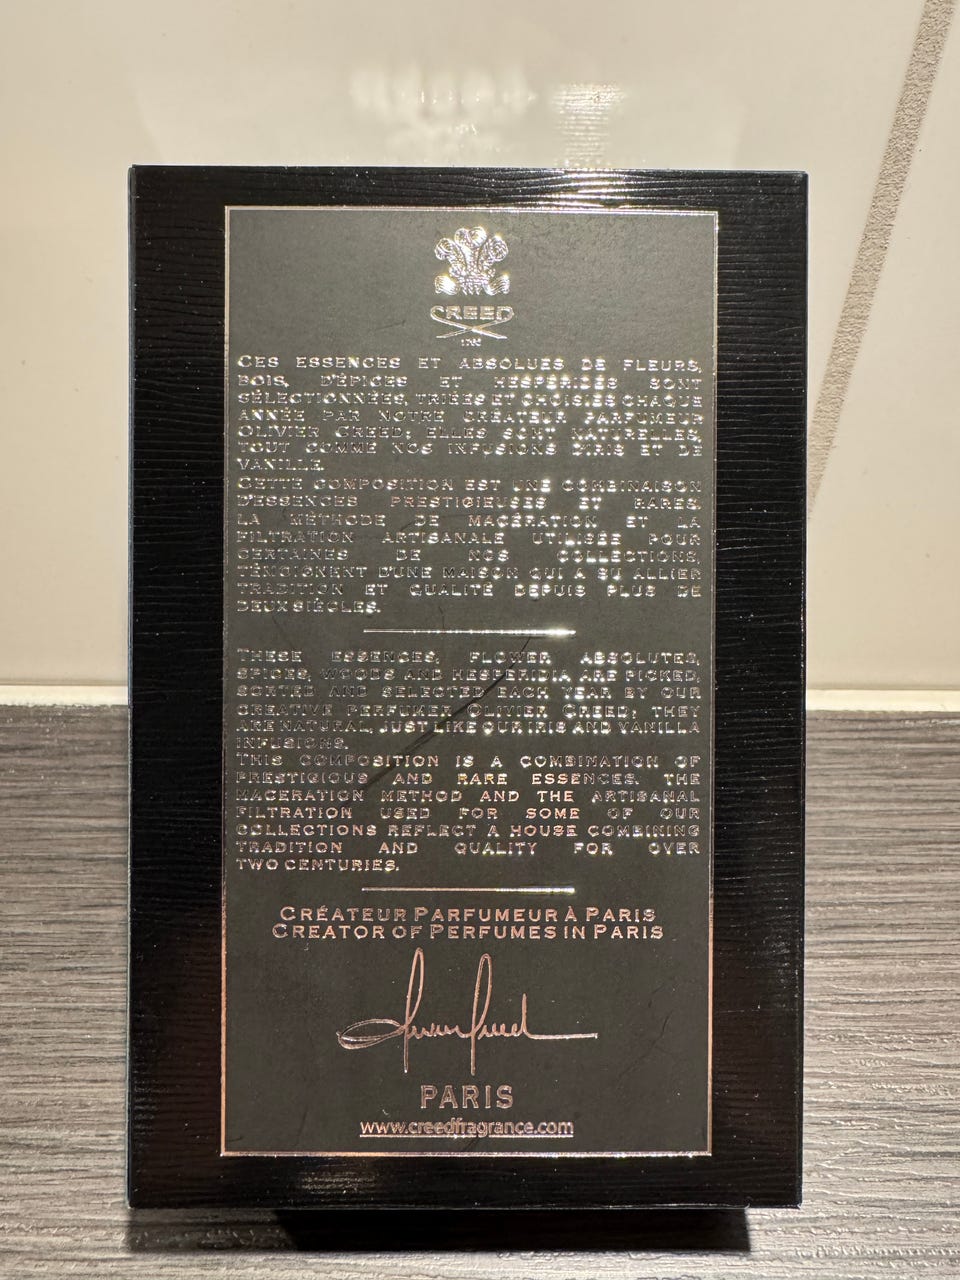 CREED
1760
CES ESSENCES ET ABSOLUES DE FLEURS,
BOIS, D'ÉPICES ET HESPÉRIDÉS SONT
SÉLECTIONNÉES, TRIÉES ET CHOISIES CHAQUE
ANNÉE PAR NOTRE CRÉATEUR PARFUMEUR
OLIVIER CREED; ELLES SONT NATURELLES,
TOUT COMME NOS INFUSIONS D'IRIS ET DE
VANILLE.
CETTE COMPOSITION EST UNE COMBINAISON
D'ESSENCES PRESTIGIEUSES ET RARES.
LA MÉTHODE DE MACÉRATION ET LA
FILTRATION ARTISANALE UTILISÉE POUR
CERTAINES DE NOS COLLECTIONS,
TÉMOIGNENT D'UNE MAISON QUI A SU ALLIER
TRADITION ET QUALITÉ DEPUIS PLUS DE
DEUX SIÈCLES.
THESE ESSENCES, FLOWER ABSOLUTES,
SPICES, WOODS AND HESPERIDIA ARE PICKED,
SORTED AND SELECTED EACH YEAR BY OUR
CREATIVE PERFUMER OLIVIER CREED; THEY
ARE NATURAL, JUST LIKE OUR IRIS AND VANILLA
INFUSIONS.
THIS COMPOSITION IS A COMBINATION OF
PRESTIGIOUS AND RARE ESSENCES. THE
MACERATION METHOD AND THE ARTISANAL
FILTRATION USED FOR SOME OF OUR
COLLECTIONS REFLECT A HOUSE COMBINING
TRADITION AND QUALITY FOR OVER
TWO CENTURIES.
CRÉATEUR PARFUMEUR À PARIS
CREATOR OF PERFUMES IN PARIS
PARIS
www.creedfragrance.com